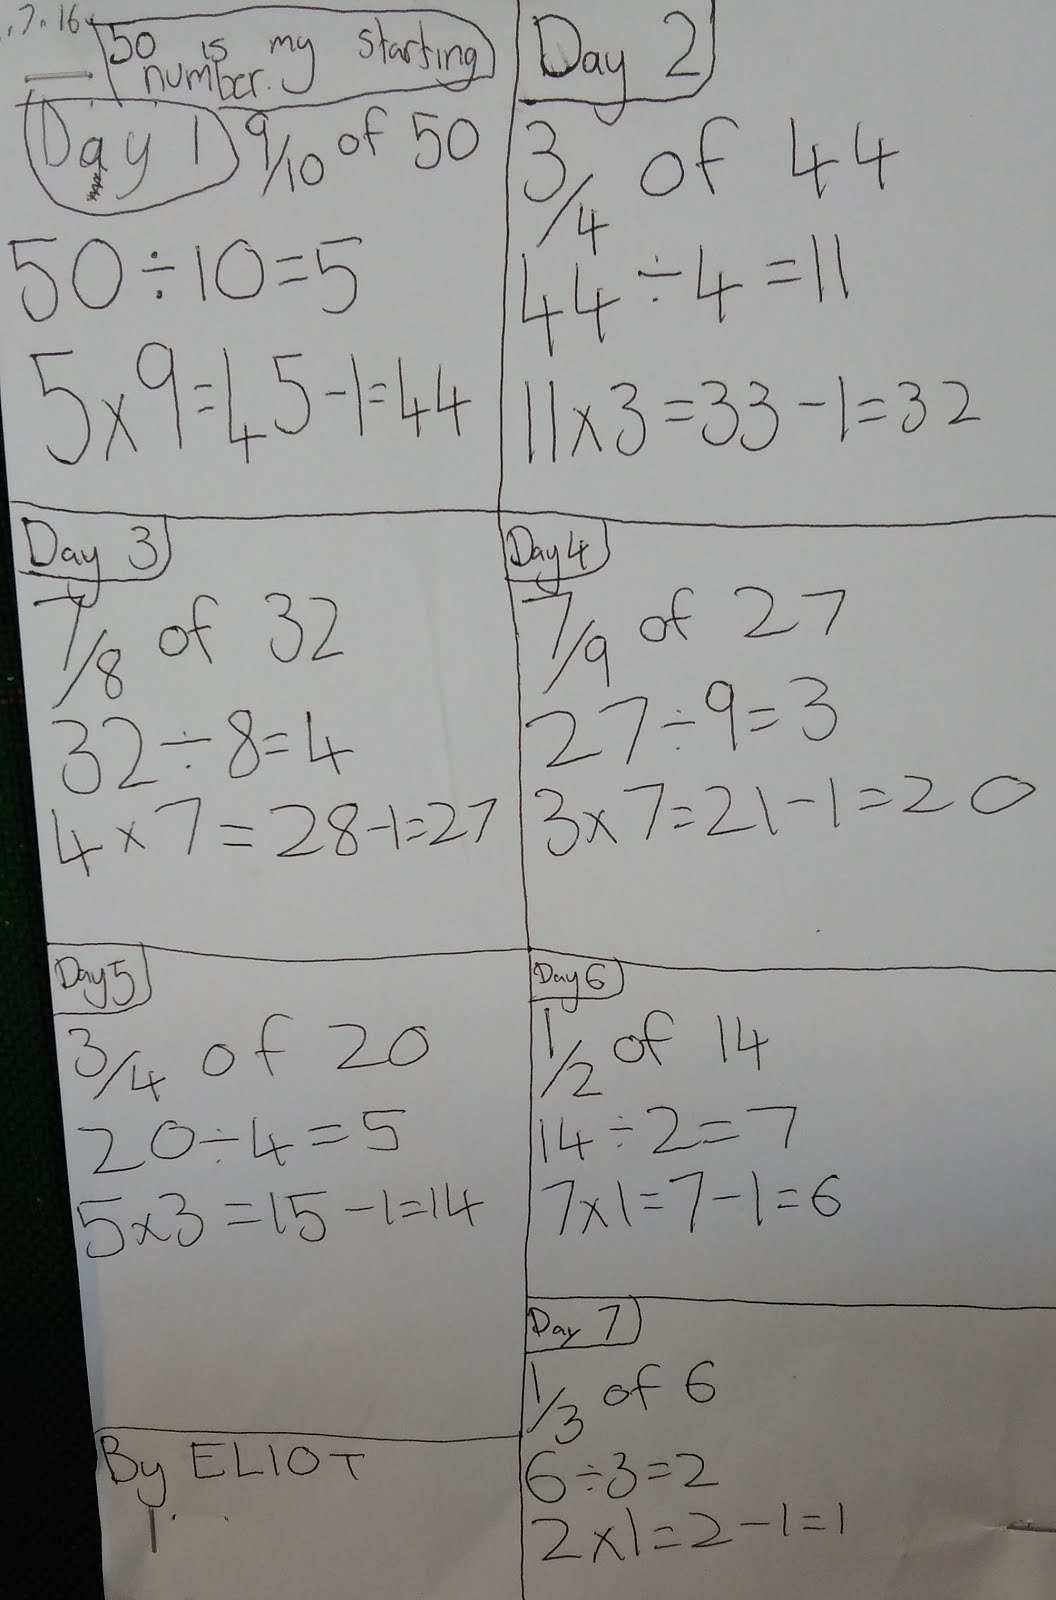 .7.16
50 is my starting
number.
Day 1 9/10 of 50
50÷10=5
5x9=45-1=44
Day 2
3/4 of 44
44÷4=11
11x3=33-1=32
Day 3
7/8 of 32
32÷8=4
4x7=28-1=27
Day 4
7/9 of 27
27÷9=3
3x7=21-1=20
Day 5
3/4 of 20
20÷4=5
5x3=15-1=14
Day 6
1/2 of 14
14÷2=7
7x1=7-1=6
Day 7
1/3 of 6
6÷3=2
2x1=2-1=1
By ELIOT